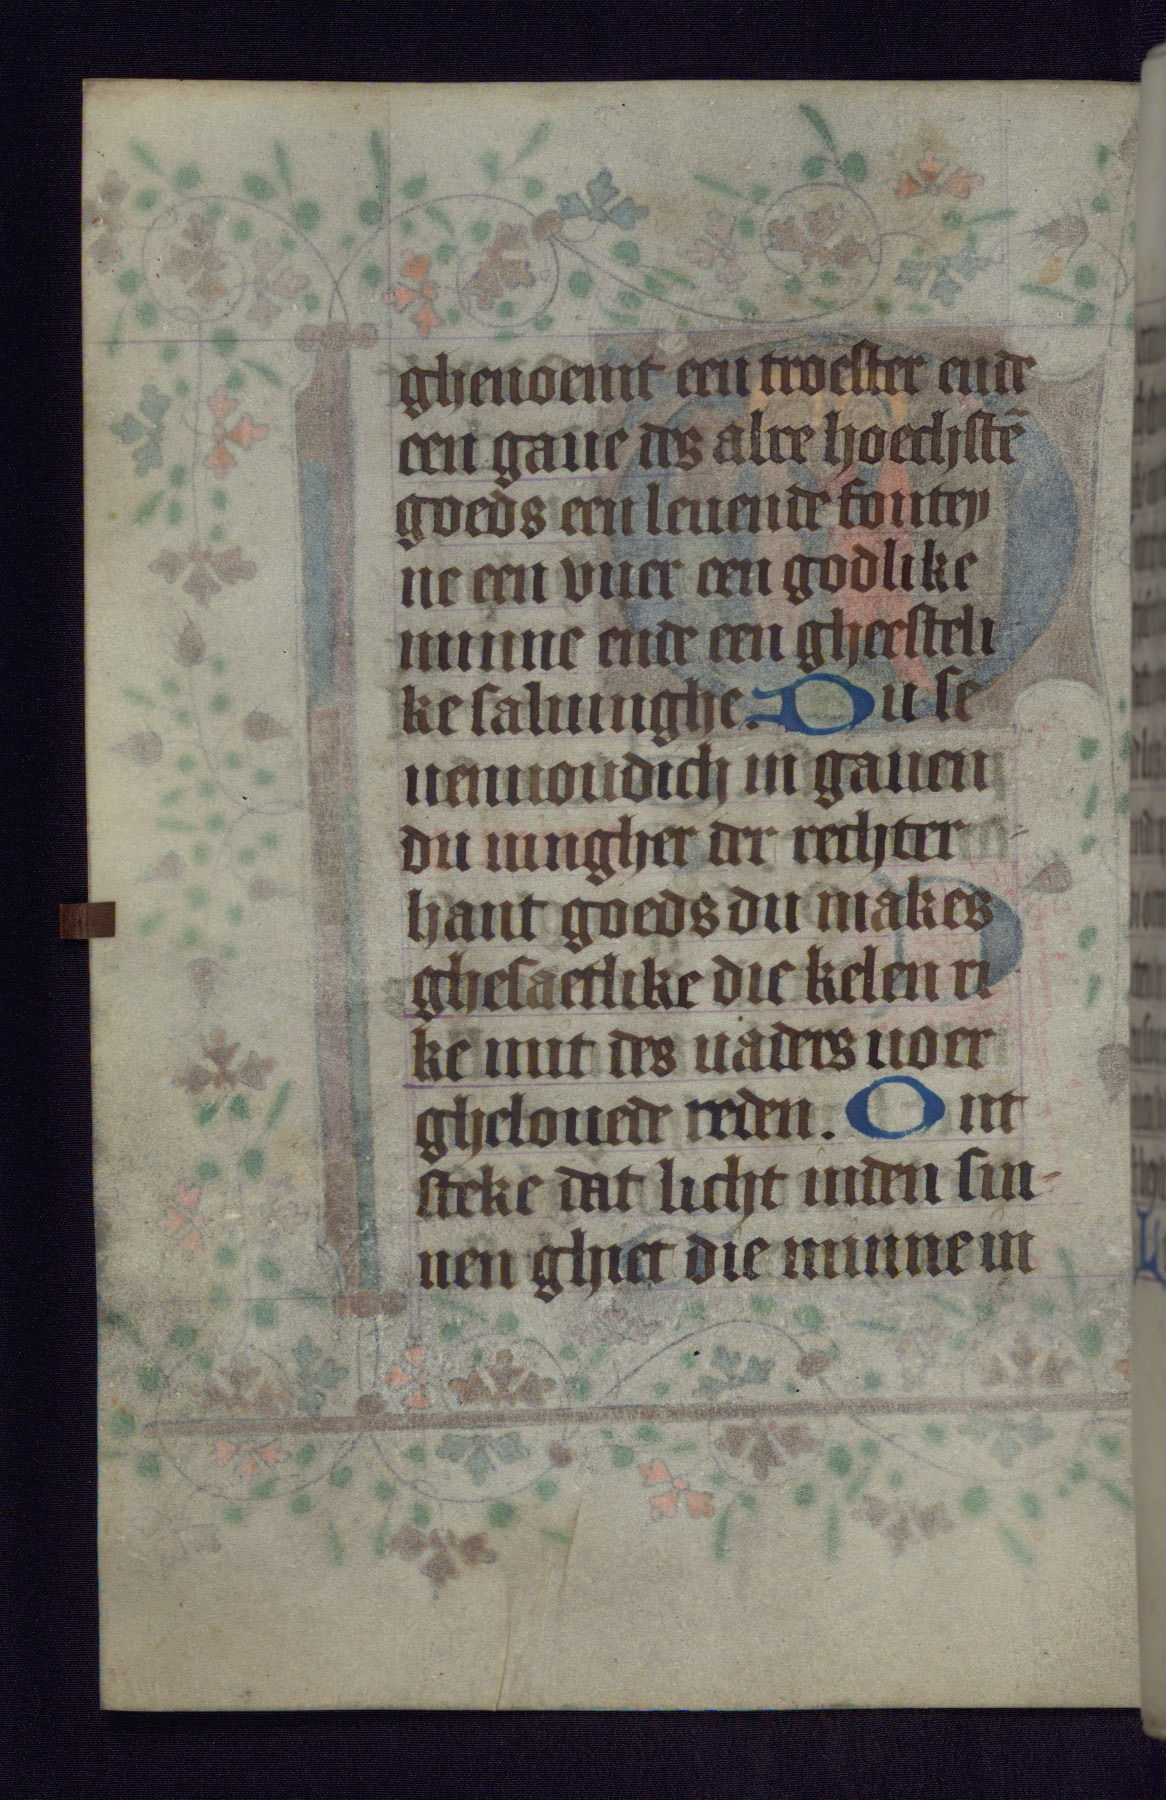 ghenoemt een troester ende
een gaue des alre hoechstē
goeds een leuende fontey
ne een vuer een godlike
minne ende een gheesteli
ke saluinghe. Du se
uenuoudich in gauen
du uingher der rechter
hant goeds du makes
ghesaetlike die kelen ri
ke mit des uaders uoer
ghelouede reden. Ont
steke dat licht inden sin-
nen ghiet die minne in